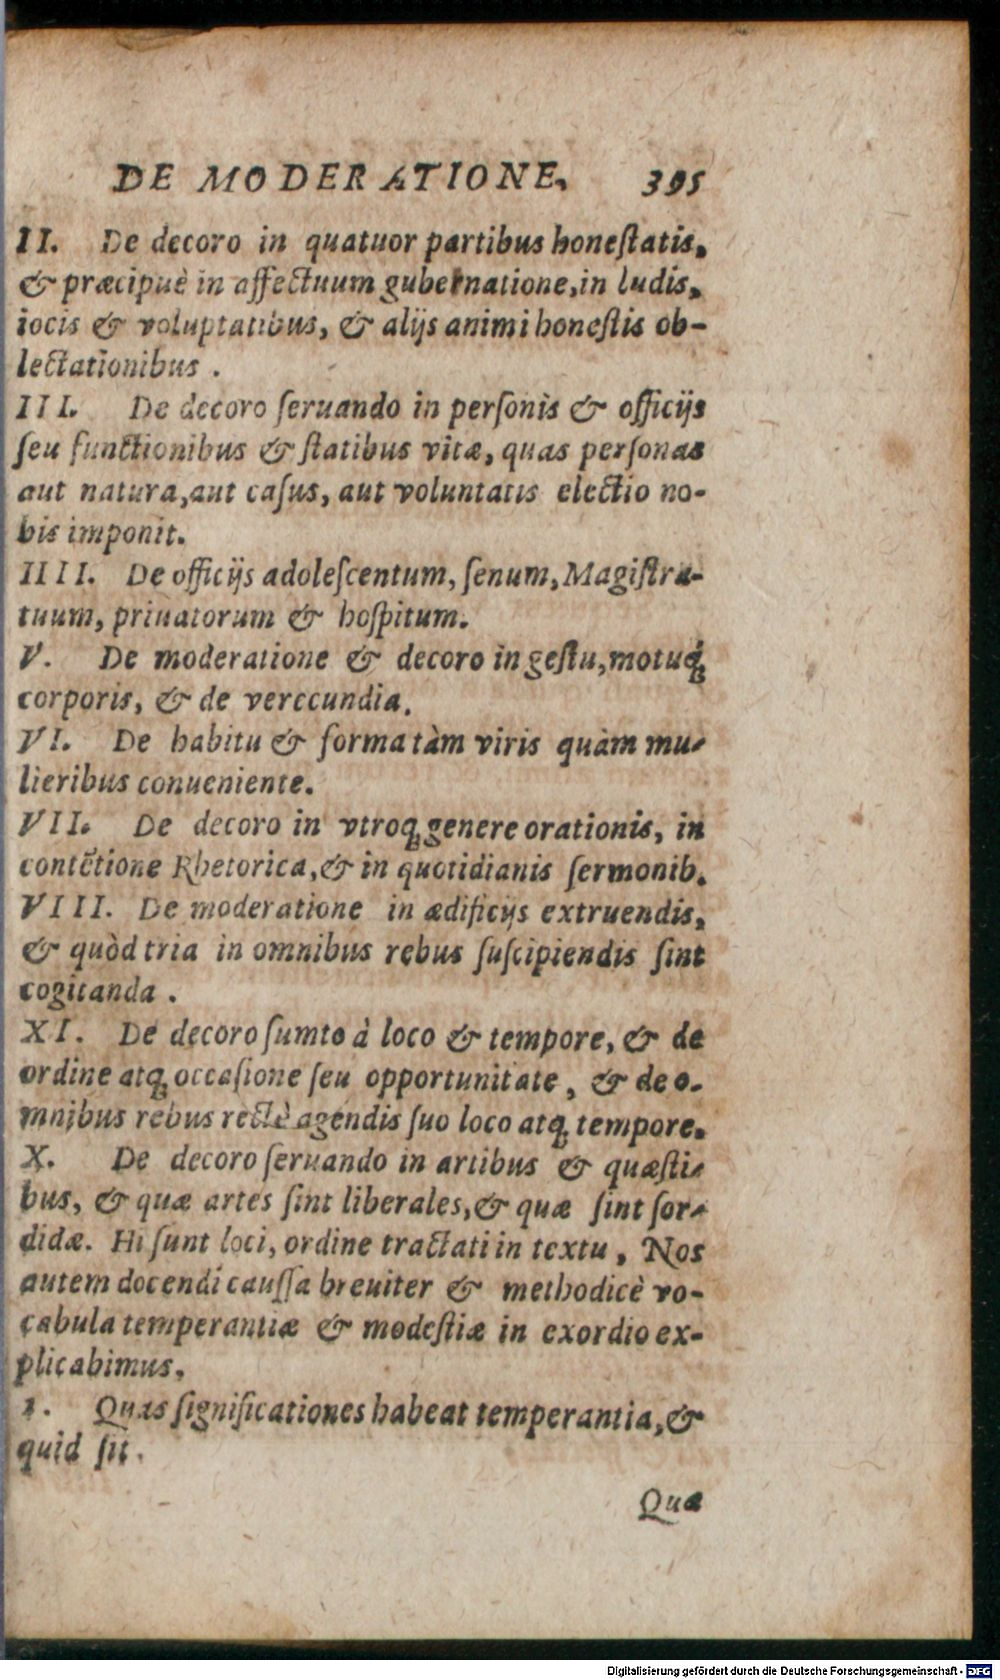 DE MODERATIONE. 395
II. De decoro in quatuor partibus honeſtatis,
& præcipuè in affectuum gubernatione, in ludis,
iocis & voluptatibus, & alijs animi honeſtis ob-
lectationibus.
III. De decoro ſeruando in perſonis & officijs
ſeu functionibus & ſtatibus vitæ, quas perſonas
aut natura, aut caſus, aut voluntatis electio no-
bis imponit.
IIII. De officijs adoleſcentum, ſenum, Magiſtra-
tuum, priuatorum & hoſpitum.
V. De moderatione & decoro in geſtu, motuq́;
corporis, & de verecundia.
VI. De habitu & forma tàm viris quàm mu-
lieribus conueniente.
VII. De decoro in vtroq; genere orationis, in
contẽtione Rhetorica, & in quotidianis ſermonib.
VIII. De moderatione in ædificijs extruendis,
& quòd tria in omnibus rebus ſuſcipiendis ſint
cogitanda.
XI. De decoro ſumto à loco & tempore, & de
ordine atq; occaſione ſeu opportunitate, & de o-
mnibus rebus rectè agendis ſuo loco atq; tempore.
X. De decoro ſeruando in artibus & quæſti-
bus, & quæ artes ſint liberales, & quæ ſint ſor-
didæ. Hi ſunt loci, ordine tractati in textu, Nos
autem docendi cauſſa breuiter & methodicè vo-
cabula temperantiæ & modeſtiæ in exordio ex-
plicabimus.
1. Quas ſignificationes habeat temperantia, &
quid ſit.
Quæ
Digitalisierung gefördert durch die Deutsche Forschungsgemeinschaft - DFG